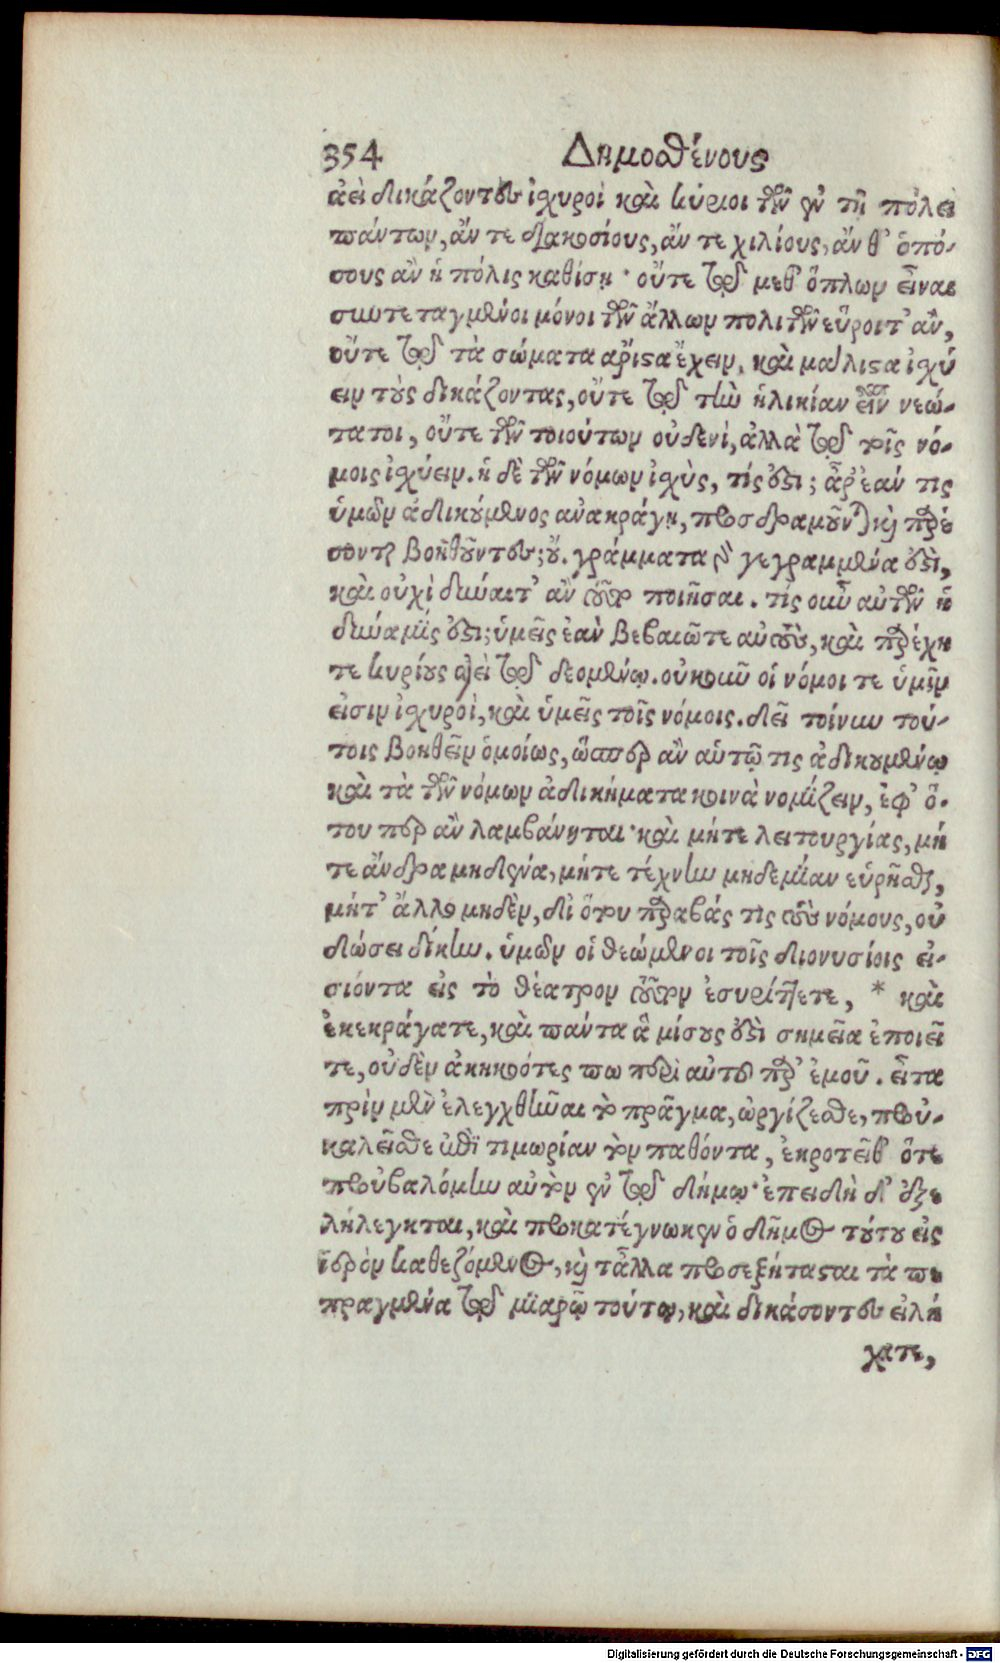 354 Δημοσθένους
ἀεὶ δικάζοντες ἰσχυροὶ καὶ κύριοι τῶν ἐν τῇ πόλει
πάντων, ἄν τε διακοσίους, ἄν τε χιλίους, ἄν θ' ὁπό-
σους ἂν ἡ πόλις καθίσῃ· οὔτε τῷ μεθ' ὅπλων εἶναι
συντεταγμένοι μόνοι τῶν ἄλλων πολιτῶν εὕροιτ' ἂν,
οὔτε τῷ τὰ σώματα ἄριστα ἔχειν, καὶ μάλιστα ἰσχύ
ειν τοὺς δικάζοντας, οὔτε τῷ τὴν ἡλικίαν εἶναι νεώ-
τατοι, οὔτε τῶν τοιούτων οὐδενί, ἀλλὰ τῷ τοῖς νό-
μοις ἰσχύειν. ἡ δὲ τῶν νόμων ἰσχὺς, τίς ἐστι; ἆρ' ἐάν τις
ὑμῶν ἀδικούμενος ἀνακράγῃ, προσδραμοῦνται καὶ παρέ
σονται βοηθοῦντες; οὔ. γράμματα γὰρ γεγραμμένα ἐστὶ,
καὶ οὐχὶ δύναιτ' ἂν τοῦτο ποιῆσαι. τίς οὖν αὐτῶν ἡ
δύναμίς ἐστι; ὑμεῖς ἐὰν βεβαιῶτε αὐτοὺς, καὶ παρέχη
τε κυρίους ἀεὶ τῷ δεομένῳ. οὐκοῦν οἱ νόμοι τε ὑμῖν
εἰσιν ἰσχυροὶ, καὶ ὑμεῖς τοῖς νόμοις. δεῖ τοίνυν τού-
τοις βοηθεῖν ὁμοίως, ὥσπερ ἂν αὑτῷ τις ἀδικουμένῳ
καὶ τὰ τῶν νόμων ἀδικήματα κοινὰ νομίζειν, ἐφ' ὅ-
του περ ἂν λαμβάνηται· καὶ μήτε λειτουργίας, μή
τε ἄνδρα μηδένα, μήτε τέχνην μηδεμίαν εὑρῆσθαι,
μήτ' ἄλλο μηδὲν, δι' ὅτου παραβάς τις τοὺς νόμους, οὐ
δώσει δίκην. ὑμῶν οἱ θεώμενοι τοῖς Διονυσίοις εἰ-
σιόντα εἰς τὸ θέατρον τοῦτον ἐσυρίττετε, * καὶ
ἐκεκράγατε, καὶ πάντα ἃ μίσους ἐστὶ σημεῖα ἐποιεῖ
τε, οὐδὲν ἀκηκοότες πω περὶ αὐτοῦ παρ' ἐμοῦ. εἶτα
πρὶν μὲν ἐλεγχθῆναι τὸ πρᾶγμα, ὠργίζεσθε, προὐ-
καλεῖσθε ἐπὶ τιμωρίαν τὸν παθόντα, ἐκροτεῖθ' ὅτε
προὐβαλόμην αὐτὸν ἐν τῷ δήμῳ· ἐπειδὴ δ' ἐξε
λήλεγκται, καὶ προκατέγνωκεν ὁ δῆμος τούτου εἰς
ἱερὸν καθεζόμενος, καὶ τἆλλα προσεξήτασται τὰ πε
πραγμένα τῷ μιαρῷ τούτῳ, καὶ δικάσοντες εἰλή
χατε,
Digitalisierung gefördert durch die Deutsche Forschungsgemeinschaft - DFG